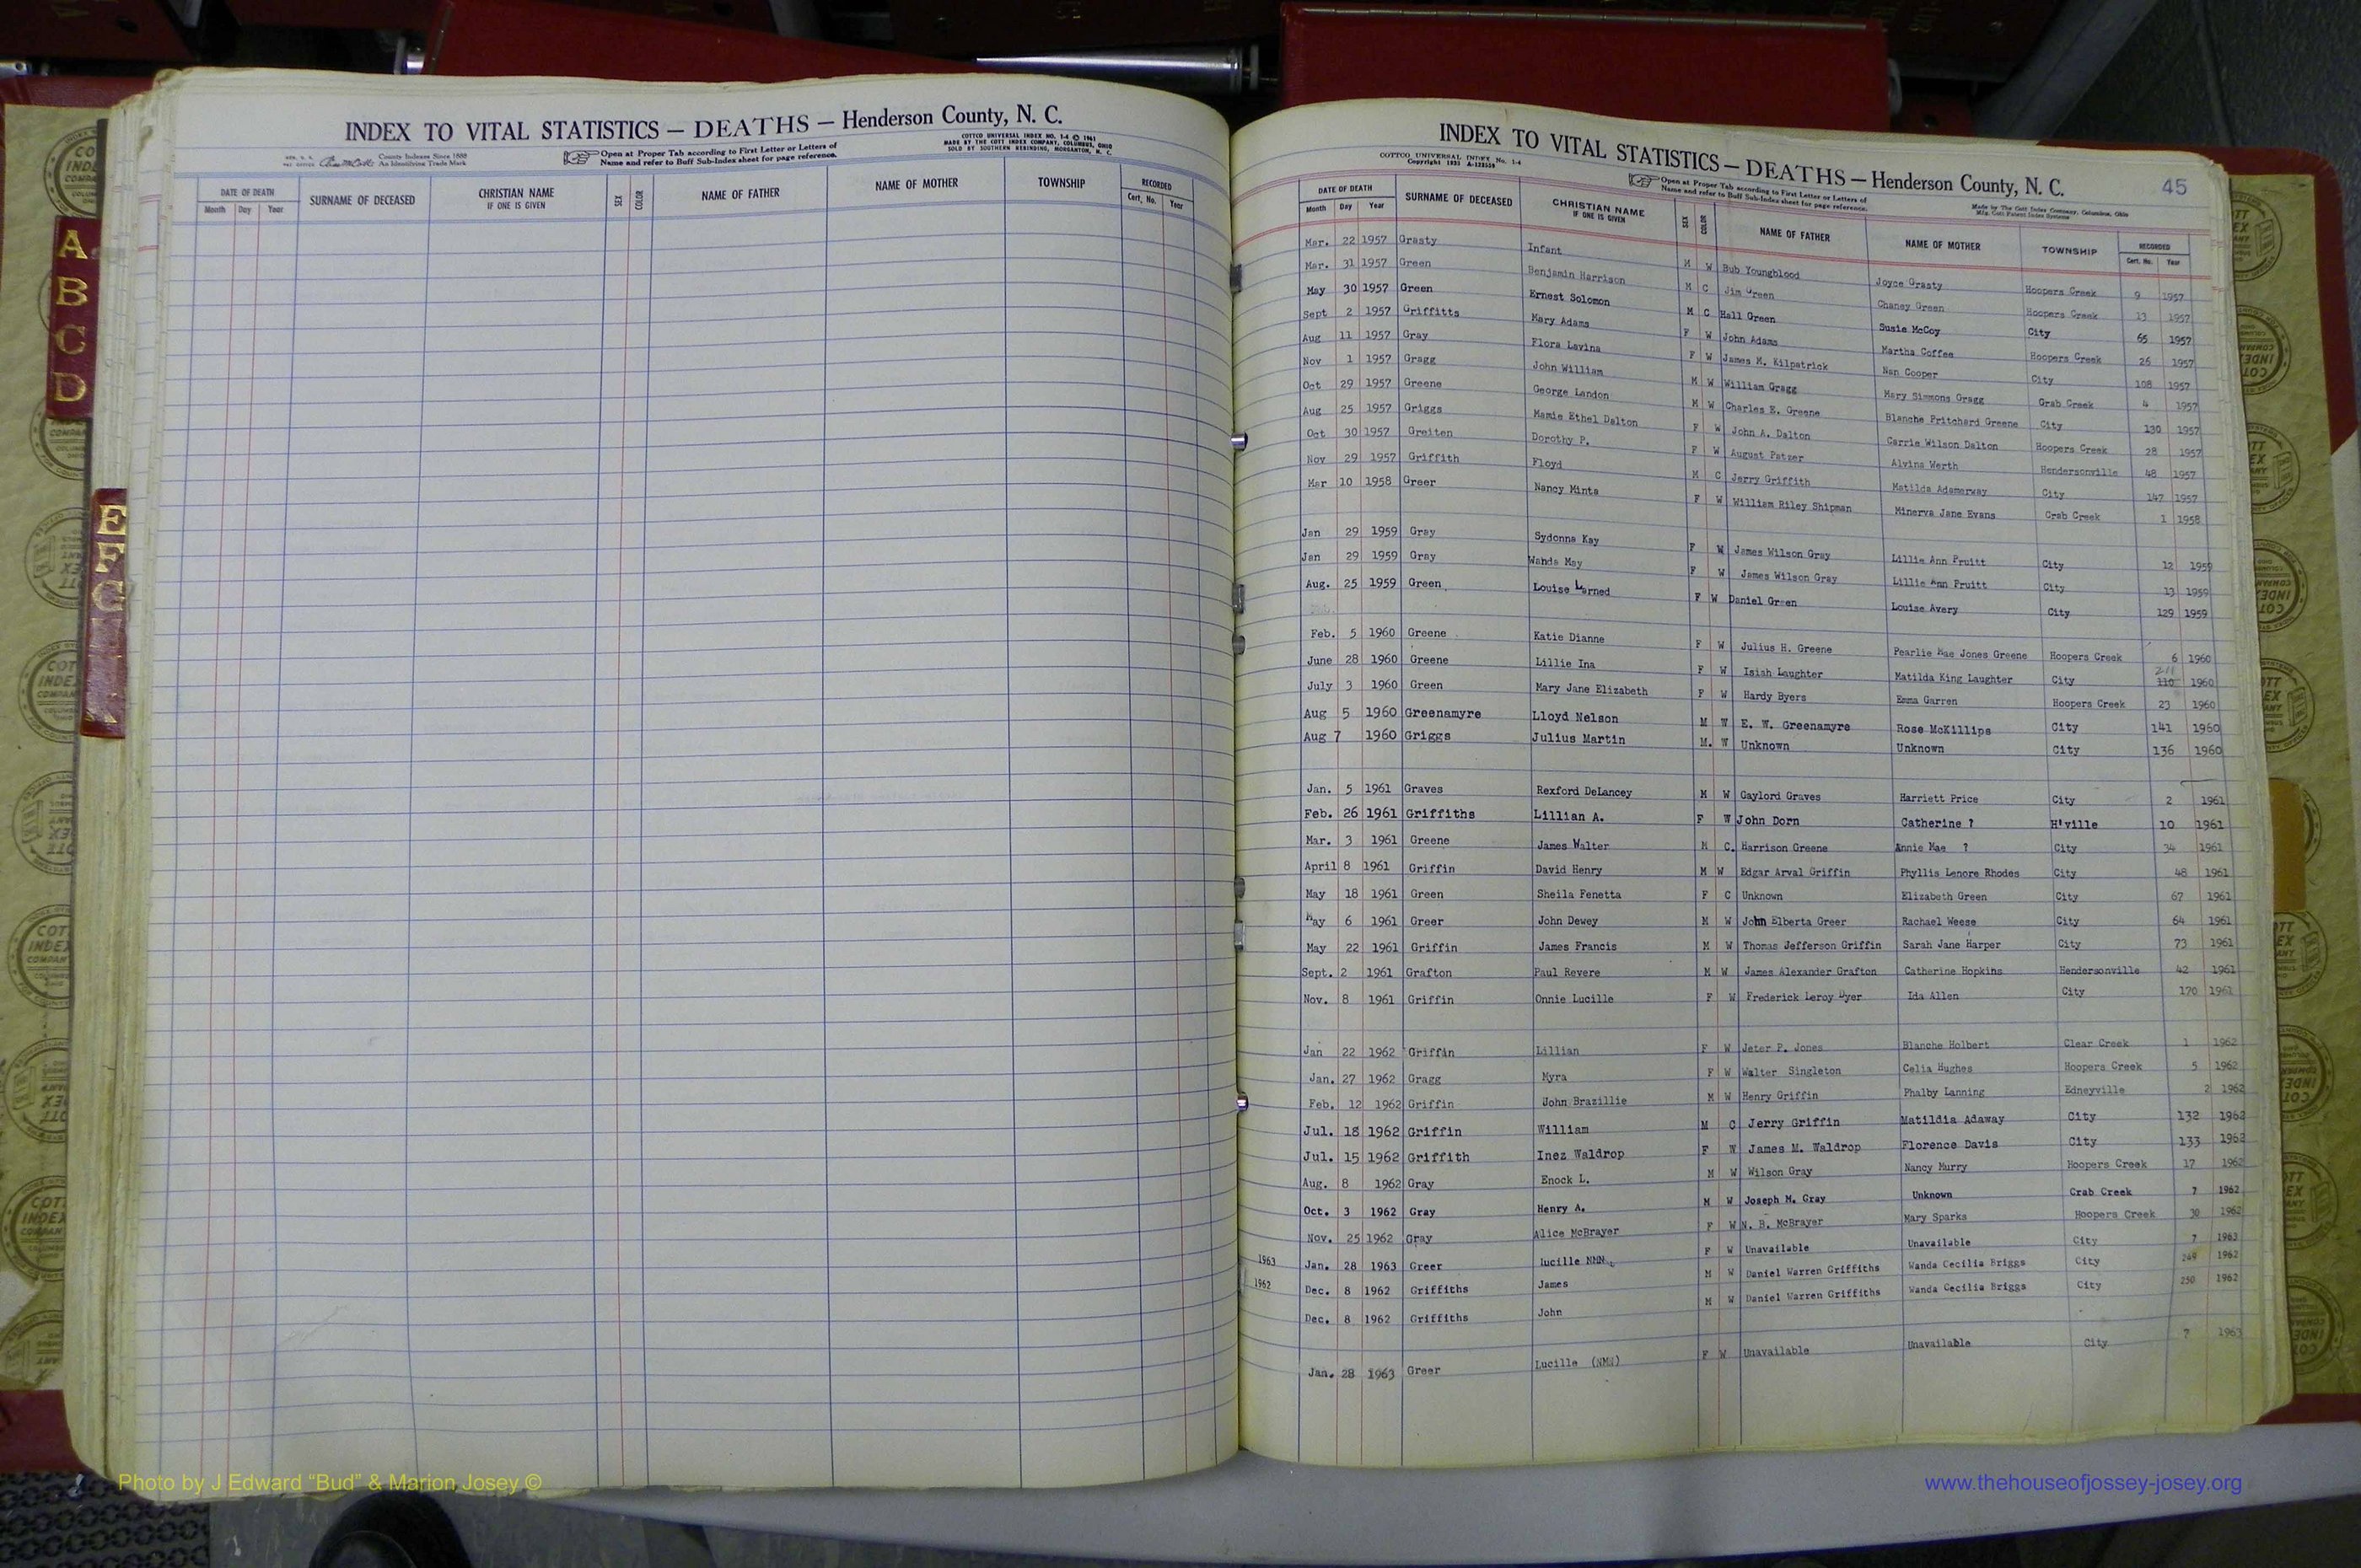 INDEX TO VITAL STATISTICS — DEATHS — Henderson County, N. C.
County Indexes Since 1888
An Identifying Trade Mark
Open at Proper Tab according to First Letter or Letters of
Name and refer to Buff Sub-Index sheet for page reference.
COTTCO UNIVERSAL INDEX NO. 1-4 © 1961
MADE BY THE COTT INDEX COMPANY, COLUMBUS, OHIO
SOLD BY SOUTHERN REBINDING, MORGANTON, N. C.
DATE OF DEATH SURNAME OF DECEASED CHRISTIAN NAME IF ONE IS GIVEN SEX COLOR NAME OF FATHER NAME OF MOTHER TOWNSHIP RECORDED
Month Day Year Cert. No. Year
A
B
C
D
E
F
G
INDEX TO VITAL STATISTICS — DEATHS — Henderson County, N. C.
45
COTTCO UNIVERSAL INDEX No. 1-4
Open at Proper Tab according to First Letter or Letters of
Name and refer to Buff Sub-Index sheet for page reference.
Made by The Cott Index Company, Columbus, Ohio
DATE OF DEATH SURNAME OF DECEASED CHRISTIAN NAME IF ONE IS GIVEN SEX COLOR NAME OF FATHER NAME OF MOTHER TOWNSHIP RECORDED
Month Day Year Cert. No. Year
Mar. 22 1957 Grasty Infant M W Bub Youngblood Joyce Grasty Hoopers Creek 9 1957
Mar. 31 1957 Green Benjamin Harrison M C Jim Green Chaney Green Hoopers Creek 13 1957
May 30 1957 Green Ernest Solomon M C Hall Green Susie McCoy City 65 1957
Sept 2 1957 Griffitts Mary Adams F W John Adams Martha Coffee Hoopers Creek 26 1957
Aug 11 1957 Gray Flora Lavina F W James M. Kilpatrick Nan Cooper City 108 1957
Nov 1 1957 Gragg John William M W William Gragg Mary Simmons Gragg Crab Creek 4 1957
Oct 29 1957 Greene George Landon M W Charles E. Greene Blanche Pritchard Greene City 130 1957
Aug 25 1957 Griggs Mamie Ethel Dalton F W John A. Dalton Carrie Wilson Dalton Hoopers Creek 28 1957
Oct 30 1957 Greiten Dorothy P. F W August Patzer Alvina Werth Hendersonville 48 1957
Nov 29 1957 Griffith Floyd M C Jerry Griffith Matilda Adamerway City 147 1957
Mar 10 1958 Greer Nancy Minta F W William Riley Shipman Minerva Jane Evans Crab Creek 1 1958
Jan 29 1959 Gray Sydonna Kay F W James Wilson Gray Lillie Ann Pruitt City 12 1959
Jan 29 1959 Gray Wanda May F W James Wilson Gray Lillie Ann Pruitt City 13 1959
Aug. 25 1959 Green Louise Larned F W Daniel Green Louise Avery City 129 1959
Feb. 5 1960 Greene Katie Dianne F W Julius H. Greene Pearlie Mae Jones Greene Hoopers Creek 6 1960
211
June 28 1960 Greene Lillie Ina F W Isiah Laughter Matilda King Laughter City 110 1960
July 3 1960 Green Mary Jane Elizabeth F W Hardy Byers Emma Garren Hoopers Creek 23 1960
Aug 5 1960 Greenamyre Lloyd Nelson M W E. W. Greenamyre Rose McKillips City 141 1960
Aug 7 1960 Griggs Julius Martin M. W Unknown Unknown City 136 1960
Jan. 5 1961 Graves Rexford DeLancey M W Gaylord Graves Harriett Price City 2 1961
Feb. 26 1961 Griffiths Lillian A. F W John Dorn Catherine ? H'ville 10 1961
Mar. 3 1961 Greene James Walter M C. Harrison Greene Annie Mae ? City 34 1961
April 8 1961 Griffin David Henry M W Edgar Arval Griffin Phyllis Lenore Rhodes City 48 1961
May 18 1961 Green Sheila Fenetta F C Unknown Elizabeth Green City 67 1961
May 6 1961 Greer John Dewey M W John Elberta Greer Rachael Weese City 64 1961
May 22 1961 Griffin James Francis M W Thomas Jefferson Griffin Sarah Jane Harper City 73 1961
Sept. 2 1961 Grafton Paul Revere M W James Alexander Grafton Catherine Hopkins Hendersonville 42 1961
Nov. 8 1961 Griffin Onnie Lucille F W Frederick Leroy Dyer Ida Allen City 170 1961
Jan 22 1962 Griffin Lillian F W Jeter P. Jones Blanche Holbert Clear Creek 1 1962
Jan. 27 1962 Gragg Myra F W Walter Singleton Celia Hughes Hoopers Creek 5 1962
Feb. 12 1962 Griffin John Brazillie M W Henry Griffin Phalby Lanning Edneyville 2 1962
Jul. 18 1962 Griffin William M C Jerry Griffin Matildia Adaway City 132 1962
Jul. 15 1962 Griffith Inez Waldrop F W James M. Waldrop Florence Davis City 133 1962
Aug. 8 1962 Gray Enock L. M W Wilson Gray Nancy Murry Hoopers Creek 17 1962
Oct. 3 1962 Gray Henry A. M W Joseph M. Gray Unknown Crab Creek 7 1962
Nov. 25 1962 Gray Alice McBrayer F W N. B. McBrayer Mary Sparks Hoopers Creek 30 1962
1963 Jan. 28 1963 Greer lucille NMN F W Unavailable Unavailable City 7 1963
1962 Dec. 8 1962 Griffiths James M W Daniel Warren Griffiths Wanda Cecilia Briggs City 249 1962
Dec. 8 1962 Griffiths John M W Daniel Warren Griffiths Wanda Cecilia Briggs City 250 1962
Jan. 28 1963 Greer Lucille (NMN) F W Unavailable Unavailable City 7 1963
Photo by J Edward “Bud” & Marion Josey ©
www.thehouseofjossey-josey.org